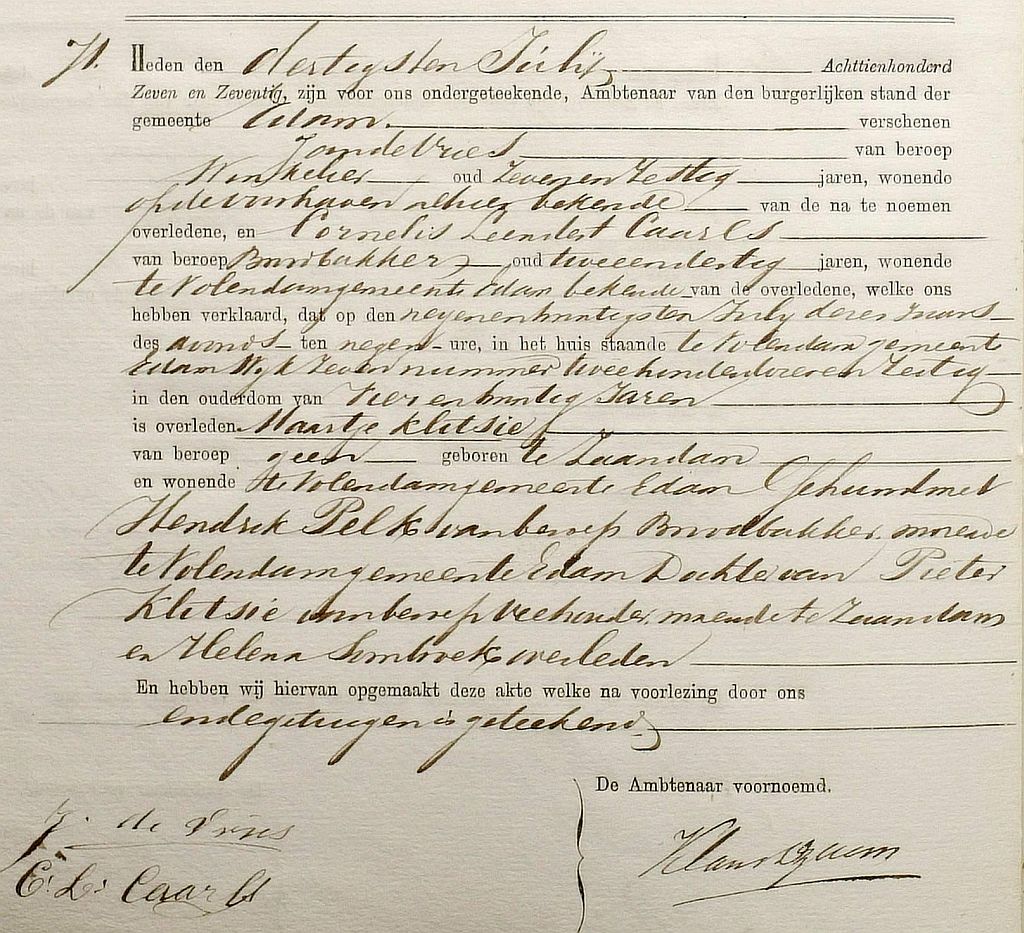 71. Heden den dertigsten Julij Achttienhonderd
Zeven en Zeventig, zijn voor ons ondergeteekende, Ambtenaar van den burgerlijken stand der
gemeente Edam verschenen
Jan de Vries van beroep
Winkelier oud Zeven en Zestig jaren, wonende
op de voorhaven alhier bekende van de na te noemen
overledene, en Cornelis Leendert Caarls
van beroep Broodbakker oud twee en dertig jaren, wonende
te Volendam gemeente Edam bekende van de overledene, welke ons
hebben verklaard, dat op den negenentwintigsten July dezes Jaars
des avonds ten negen ure, in het huis staande te Volendam gemeente
Edam Wyk Zeven nummer tweehonderd vier en Zestig
in den ouderdom van Vier en twintig Jaren
is overleden Maartje Klitsie
van beroep geen geboren te Zaandam
en wonende te Volendam gemeente Edam Gehuwd met
Hendrik Pelk van beroep Broodbakker, wonende
te Volendam gemeente Edam Dochter van Pieter
Klitsie van beroep Veehouder, wonende te Zaandam
en Helena Sombroek overleden
En hebben wij hiervan opgemaakt deze akte welke na voorlezing door ons
en de getuigen is geteekend
De Ambtenaar voornoemd.
J. de Vries
C. L. Caarls